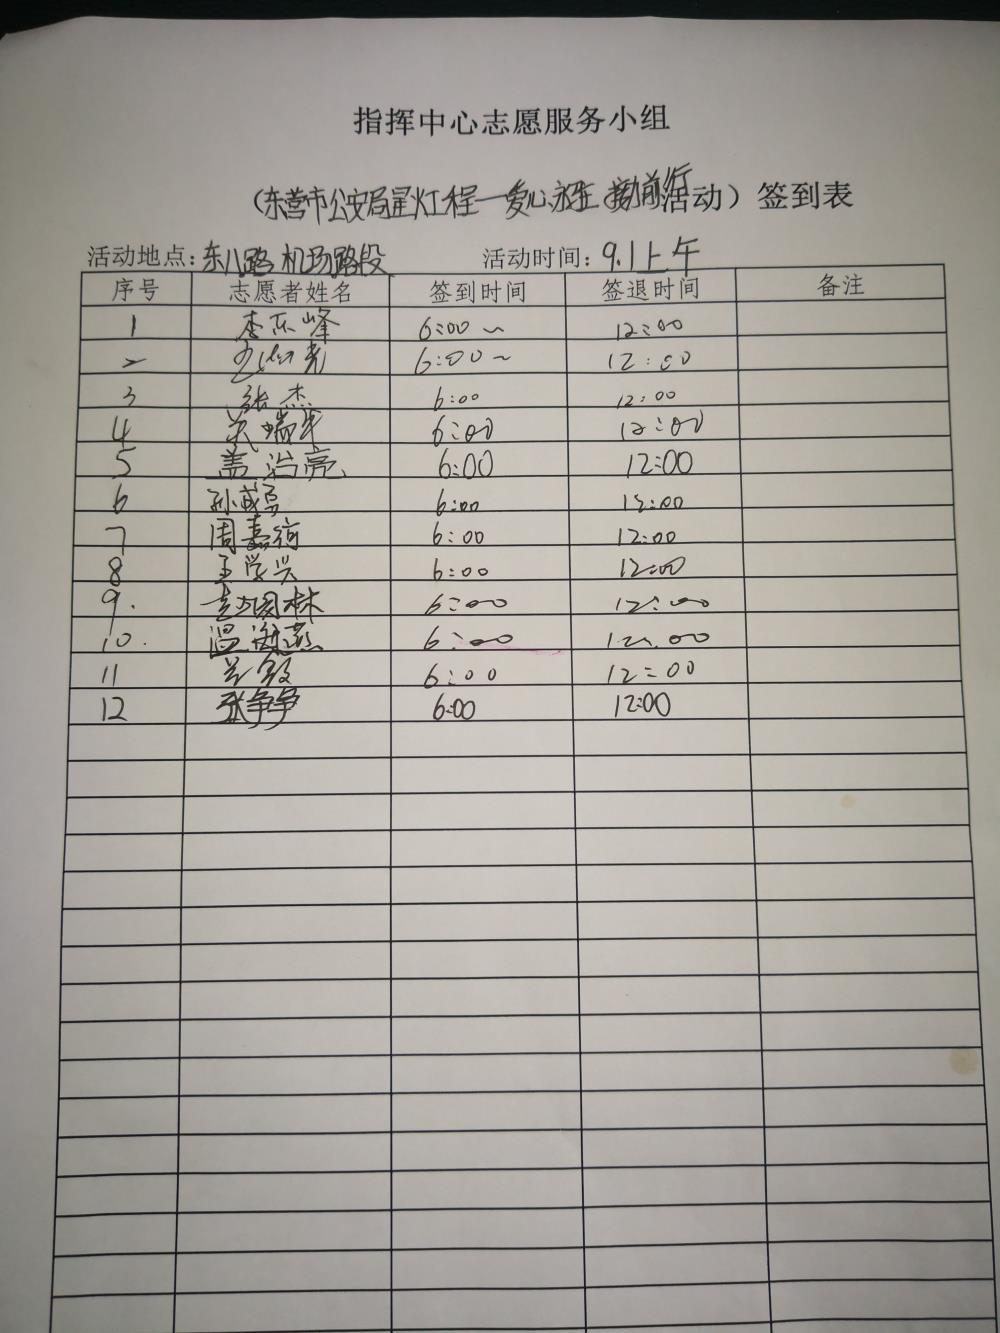 指挥中心志愿服务小组
(东营市公安局星灯工程一爱心永恒 接力前行活动）签到表
活动地点：东八路 机场路段 活动时间：9.1上午
序号 志愿者姓名 签到时间 签退时间 备注
1 李东峰 6:00～ 12:00
2 6:00～ 12:00
3 张杰 6:00 12:00
4 6:00 12:00
5 盖治亮 6:00 12:00
6 6:00 12:00
7 周嘉衍 6:00 12:00
8 王学兴 6:00 12:00
9. 6:00 12:00
10. 温燕 6:00 12:00
11 6:00 12:00
12 张争争 6:00 12:00